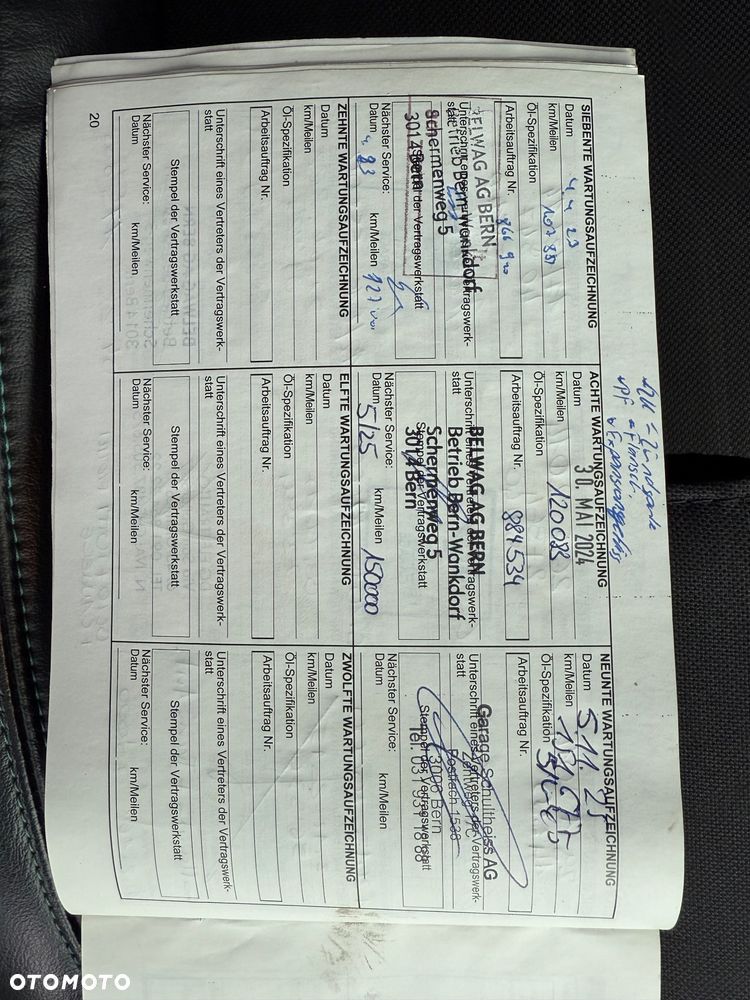 SIEBENTE WARTUNGSAUFZEICHNUNG
Datum 4.4 23
km/Meilen 107 851
Öl-Spezifikation
Arbeitsauftrag Nr. 866 920
BELWAG AG BERN
Unterschrift eines Vertreters der Vertragswerk-
statt
Betrieb Bern-Wankdorf
Schermenweg 5
Stempel der Vertragswerkstatt
3014 Bern
Nächster Service:
Datum km/Meilen
ACHTE WARTUNGSAUFZEICHNUNG
Datum 30. MAI 2024
km/Meilen 120088
Öl-Spezifikation
Arbeitsauftrag Nr. 884534
BELWAG AG BERN
Unterschrift eines Vertreters der Vertragswerk-
statt
Betrieb Bern-Wankdorf
Schermenweg 5
Stempel der Vertragswerkstatt
3014 Bern
Nächster Service:
Datum 5/25 km/Meilen 150000
NEUNTE WARTUNGSAUFZEICHNUNG
Datum 5.11.25
km/Meilen
Öl-Spezifikation
Arbeitsauftrag Nr.
Garage Schultheiss AG
Unterschrift eines Vertreters der Vertragswerk-
statt
Postfach 1538
3006 Bern
Stempel der Vertragswerkstatt
Tel. 031 931 18 88
Nächster Service:
Datum km/Meilen
ZEHNTE WARTUNGSAUFZEICHNUNG
Datum
km/Meilen
Öl-Spezifikation
Arbeitsauftrag Nr.
Unterschrift eines Vertreters der Vertragswerk-
statt
Stempel der Vertragswerkstatt
Nächster Service:
Datum km/Meilen
ELFTE WARTUNGSAUFZEICHNUNG
Datum
km/Meilen
Öl-Spezifikation
Arbeitsauftrag Nr.
Unterschrift eines Vertreters der Vertragswerk-
statt
Stempel der Vertragswerkstatt
Nächster Service:
Datum km/Meilen
ZWÖLFTE WARTUNGSAUFZEICHNUNG
Datum
km/Meilen
Öl-Spezifikation
Arbeitsauftrag Nr.
Unterschrift eines Vertreters der Vertragswerk-
statt
Stempel der Vertragswerkstatt
Nächster Service:
Datum km/Meilen
20
OTOMOTO